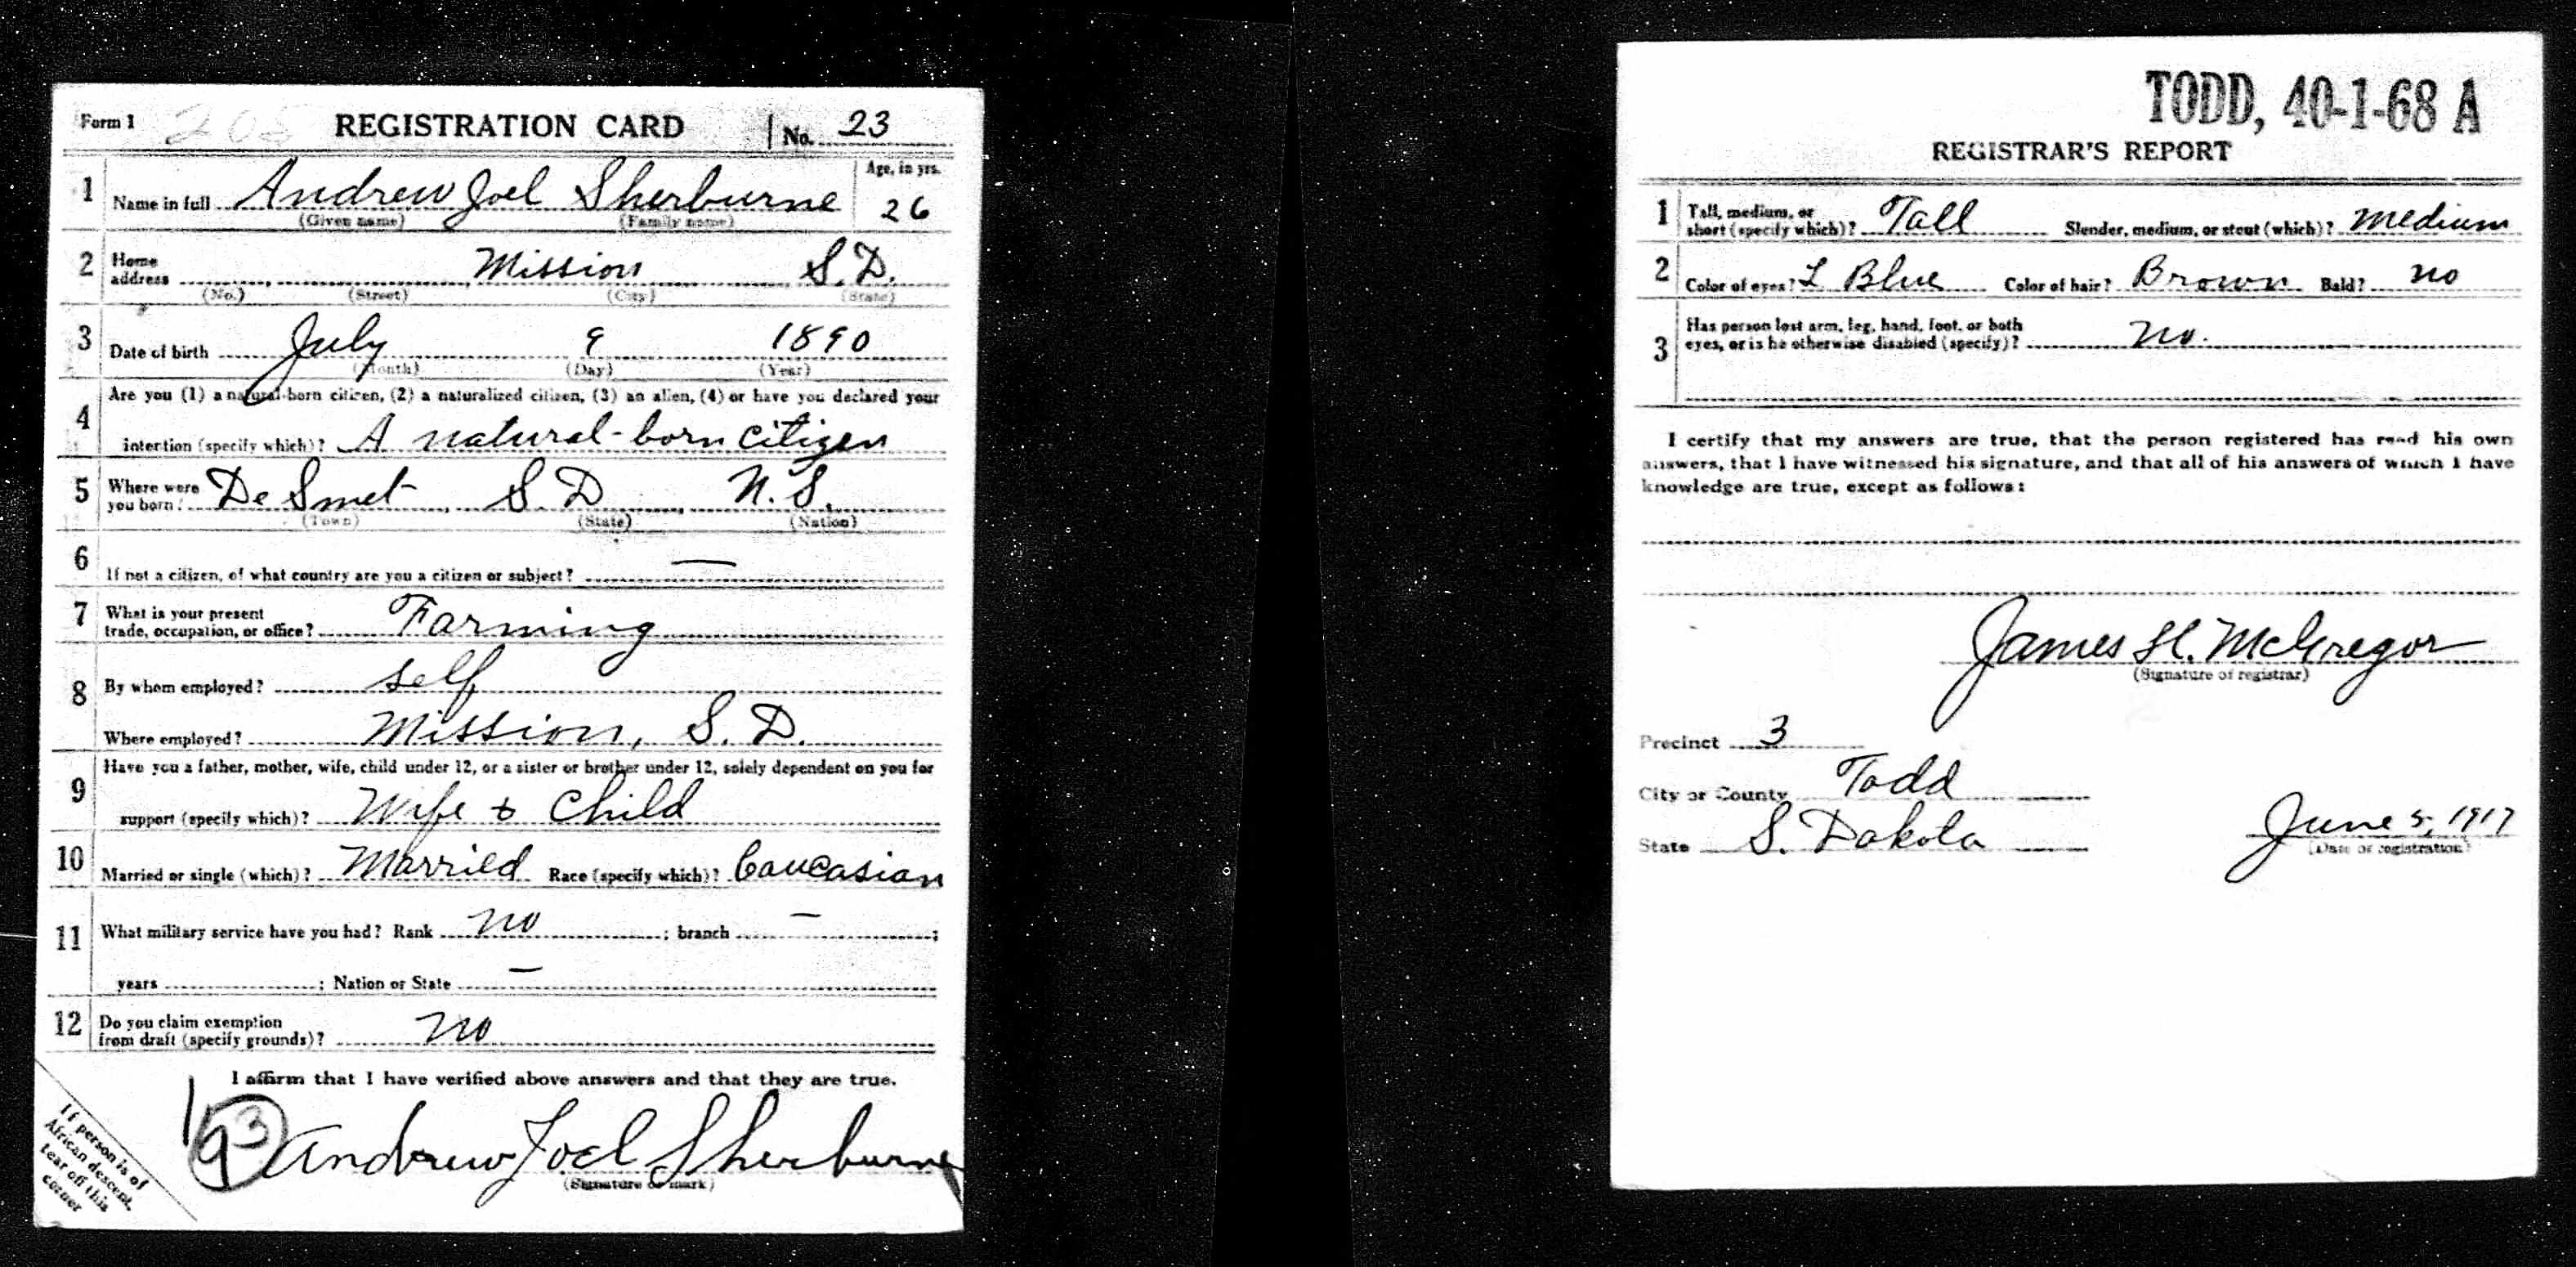 Form 1 REGISTRATION CARD No. 23
1 Name in full Andrew Joel Sherburne Age, in yrs. 26
(Given name) (Family name)
2 Home address Mission S.D.
(No.) (Street) (City) (State)
3 Date of birth July 9 1890
(Month) (Day) (Year)
4 Are you (1) a natural-born citizen, (2) a naturalized citizen, (3) an alien, (4) or have you declared your
intention (specify which)? A natural-born citizen
5 Where were you born? De Smet S.D U.S.
(Town) (State) (Nation)
6 If not a citizen, of what country are you a citizen or subject? —
7 What is your present
trade, occupation, or office? Farming
8 By whom employed? self
Where employed? Mission, S.D.
9 Have you a father, mother, wife, child under 12, or a sister or brother under 12, solely dependent on you for
support (specify which)? Wife & Child
10 Married or single (which)? Married Race (specify which)? Caucasian
11 What military service have you had? Rank no ; branch — ;
years ; Nation or State —
12 Do you claim exemption
from draft (specify grounds)? no
I affirm that I have verified above answers and that they are true.
193 Andrew Joel Sherburne
(Signature or mark)
If person is of
African descent,
tear off this
corner
TODD, 40-1-68 A
REGISTRAR'S REPORT
1 Tall, medium, or
short (specify which)? Tall Slender, medium, or stout (which)? medium
2 Color of eyes? L Blue Color of hair? Brown Bald? no
3 Has person lost arm, leg, hand, foot, or both
eyes, or is he otherwise disabled (specify)? no.
I certify that my answers are true, that the person registered has read his own
answers, that I have witnessed his signature, and that all of his answers of which I have
knowledge are true, except as follows:
James H. McGregor
(Signature of registrar)
Precinct 3
City or County Todd
State S. Dakota June 5, 1917
(Date of registration)